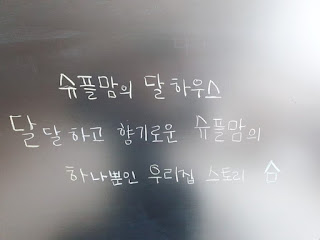 슈플맘의 달하우스
달달하고 향기로운 슈플맘의
하나뿐인 우리집 스토리 슴